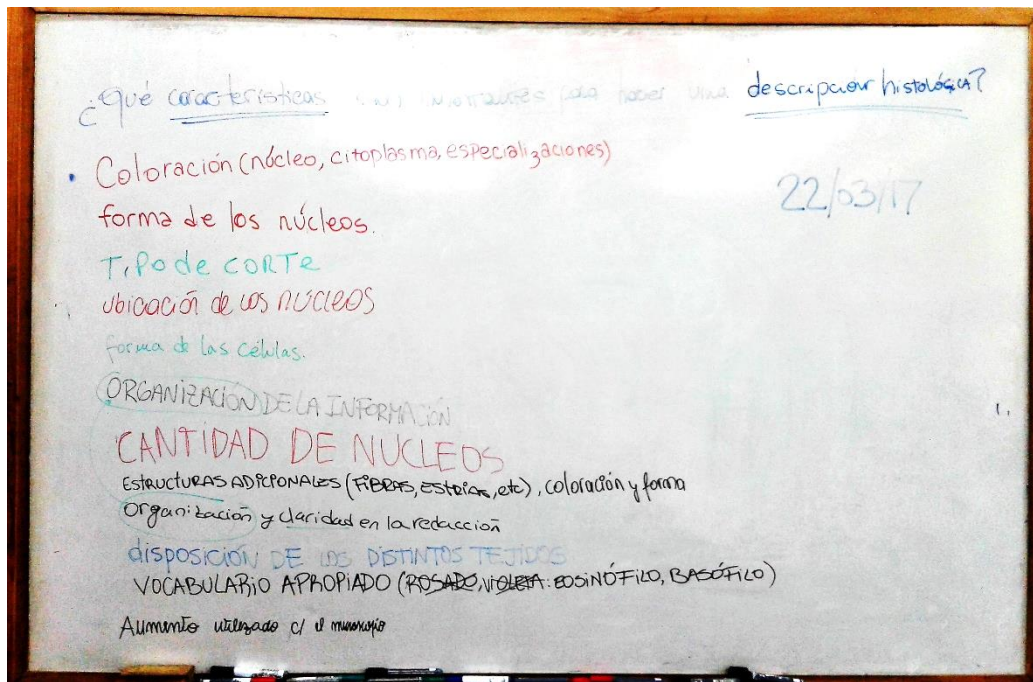 ¿Qué características son importantes para hacer una descripción histológica?
22/03/17
• Coloración (núcleo, citoplasma, especializaciones)
forma de los núcleos.
Tipo de CORTE
Ubicación de los NÚCLEOS
forma de las células.
ORGANIZACIÓN DE LA INFORMACIÓN
CANTIDAD DE NUCLEOS
ESTRUCTURAS ADICIONALES (FIBRAS, ESTRIAS, etc), coloración y forma
Organización y claridad en la redacción
disposición DE LOS DISTINTOS TEJIDOS
VOCABULARIO APROPIADO (ROSADO, VIOLETA: EOSINÓFILO, BASÓFILO)
Aumento utilizado c/ el microscopio